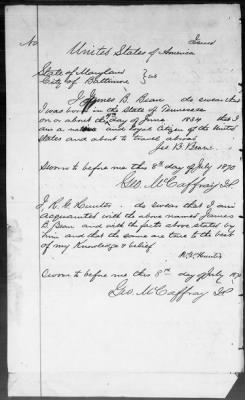 No Issued
United States of America
State of Maryland
City of Baltimore } SS
I James B. Bean do swear that
I was born in the State of Tennessee
on or about the day of June 1834 that I
am a and loyal Citizen of the United
States and about to travel abroad
Jas B. Bean
Sworn to before me this 8th day of July 1870
Geo. McCaffray
I, R. G. Hunter do swear that I am
acquainted with the above named James
B. Bean and with the facts above stated by
him and that the same are true to the best
of my Knowledge & belief
R. G. Hunter
Sworn to before me this 8th day of July 1870
Geo McCaffray